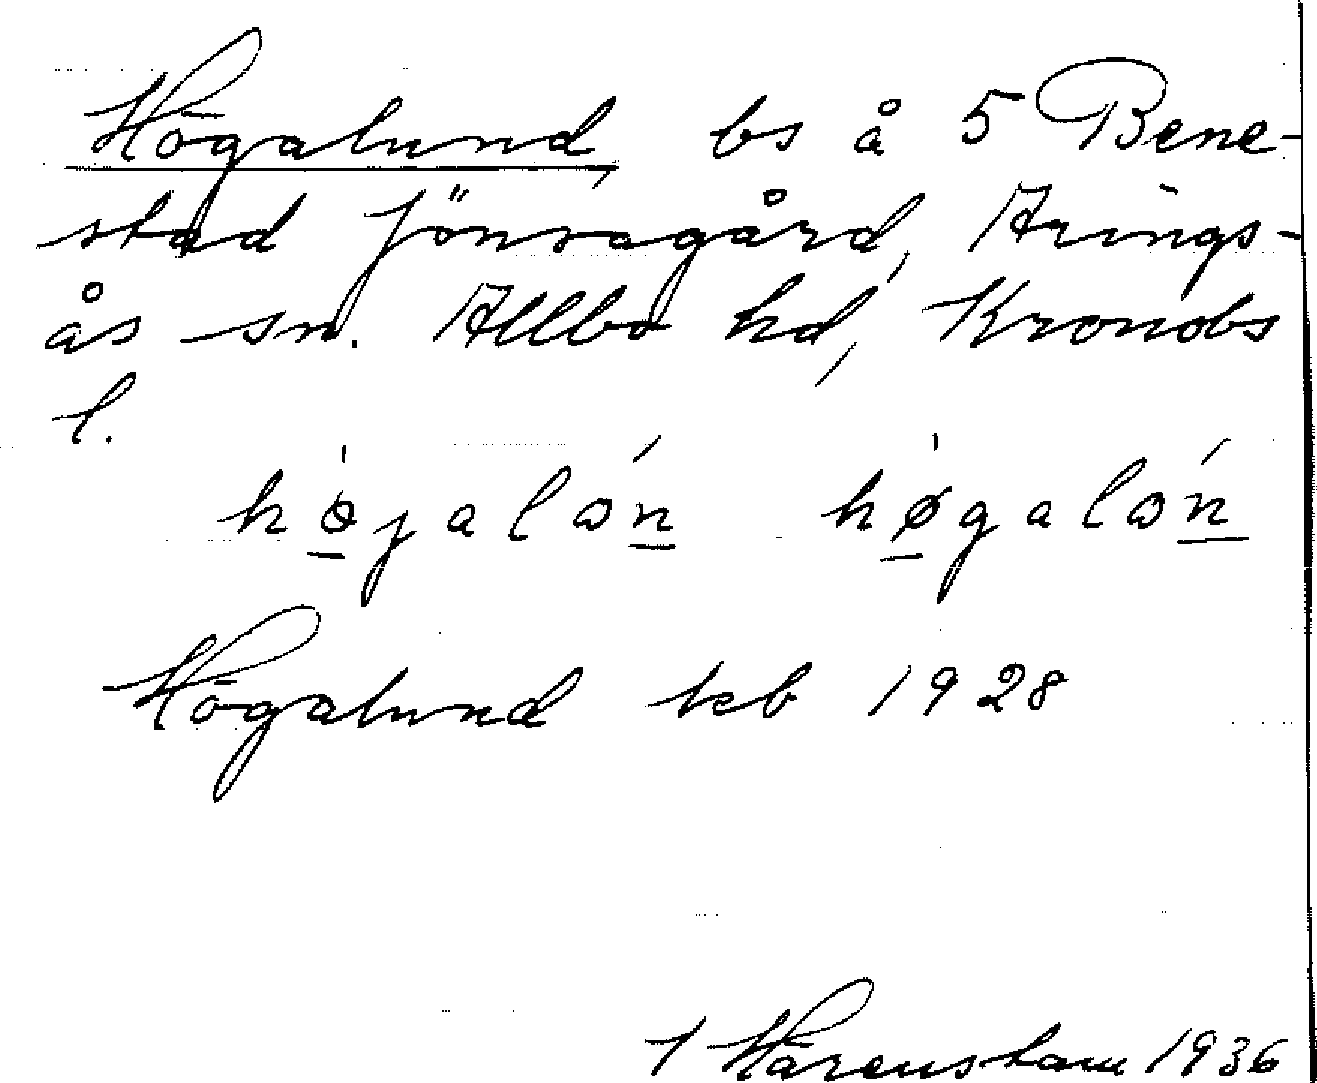 Högalund, bs å 5 Bene-
stad Jönsagård, Arings-
ås sn. Allbo hd, Kronobs
l.
hø̲jalɔń̲ hø̲galɔń̲
Högalund kb 1928
Härenstam 1936